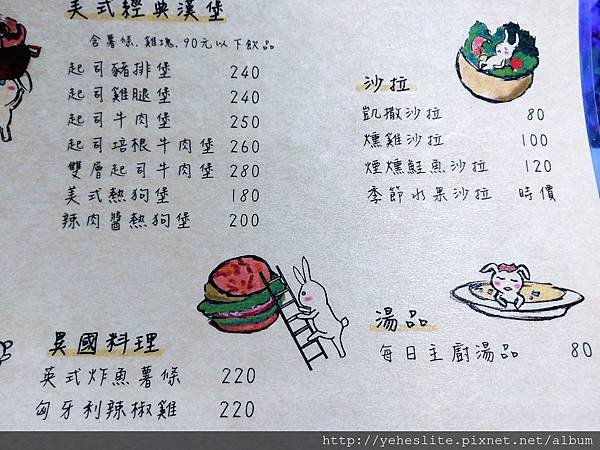 美式經典漢堡
含薯條.雞塊.90元以下飲品
起司豬排堡 240
起司雞腿堡 240
起司牛肉堡 250
起司培根牛肉堡 260
雙層起司牛肉堡 280
美式熱狗堡 180
辣肉醬熱狗堡 200
異國料理
英式炸魚薯條 220
匈牙利辣椒雞 220
沙拉
凱撒沙拉 80
燻雞沙拉 100
煙燻鮭魚沙拉 120
季節水果沙拉 時價
湯品
每日主廚湯品 80
http://yeheslite.pixnet.net/album